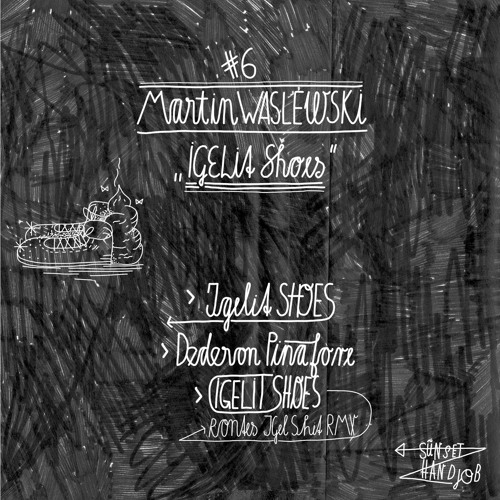 #6
Martin WASLEWSKI
„IGELIT Shoes“
> IgeliT SHOES
> Dederon Pinafore
> IGELIT SHOES
RONtes IGel Shit RMX
SUNSET
HANDJOB